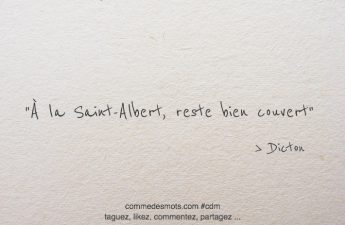 "À la Saint-Albert, reste bien couvert"
> Dicton
commedesmots.com #cdm
taguez, likez, commentez, partagez ...